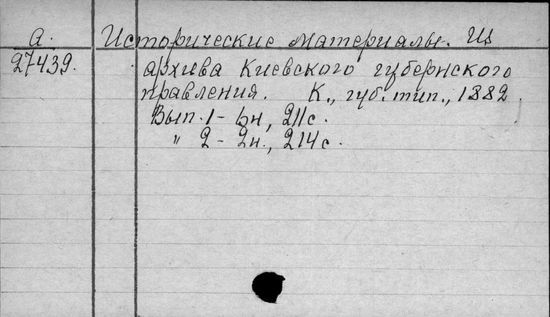 А. Исторические материалы. Из
27439. архива Киевского губернского
правления. К., губ. тип., 1882.
Вып. 1 - 6н, 211 с.
" 2 - 2н., 214 с.